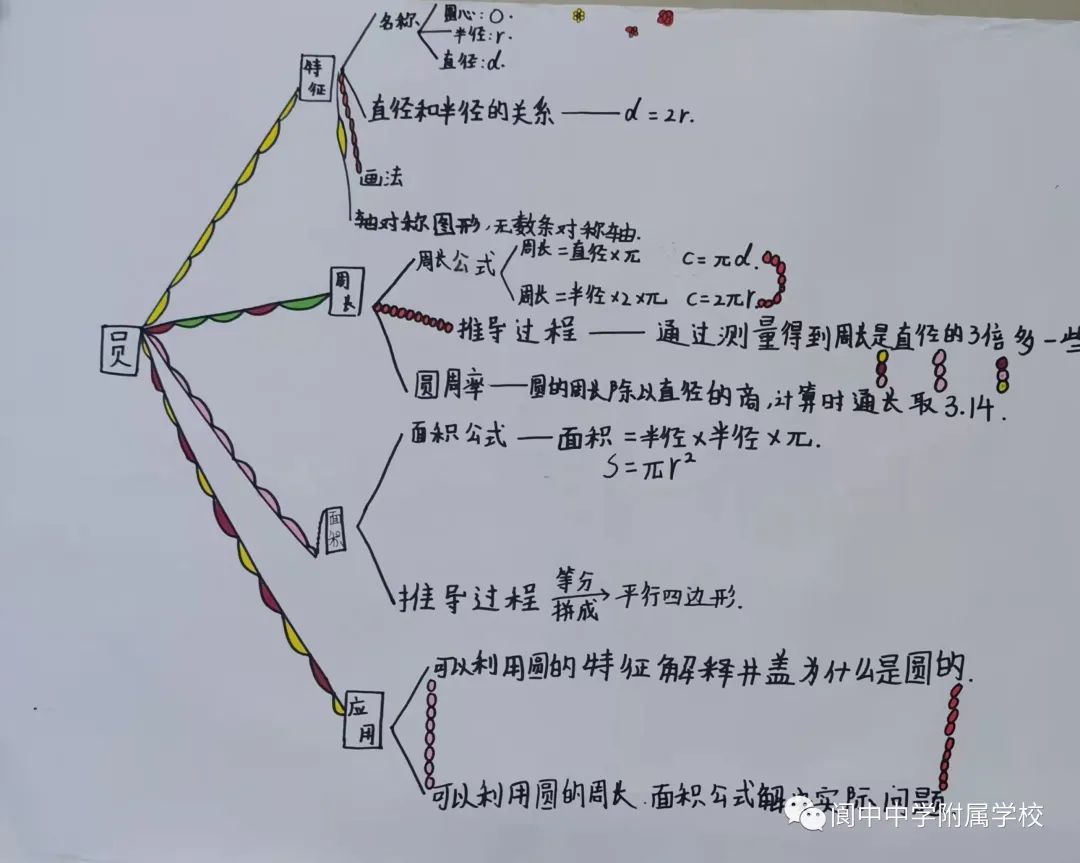 特征
名称
圆心:O.
半径:r.
直径:d.
直径和半径的关系——d=2r.
画法
轴对称图形,无数条对称轴.
员
周长
周长公式
周长=直径×π C=πd.
周长=半径×2×π C=2πr.
推导过程——通过测量得到周长是直径的3倍多一些
圆周率——圆的周长除以直径的商,计算时通长取3.14.
面积
面积公式——面积=半径×半径×π.
S=πr²
推导过程 等分 拼成 → 平行四边形.
应用
可以利用圆的特征解释井盖为什么是圆的.
可以利用圆的周长.面积公式解决实际问题
阆中中学附属学校